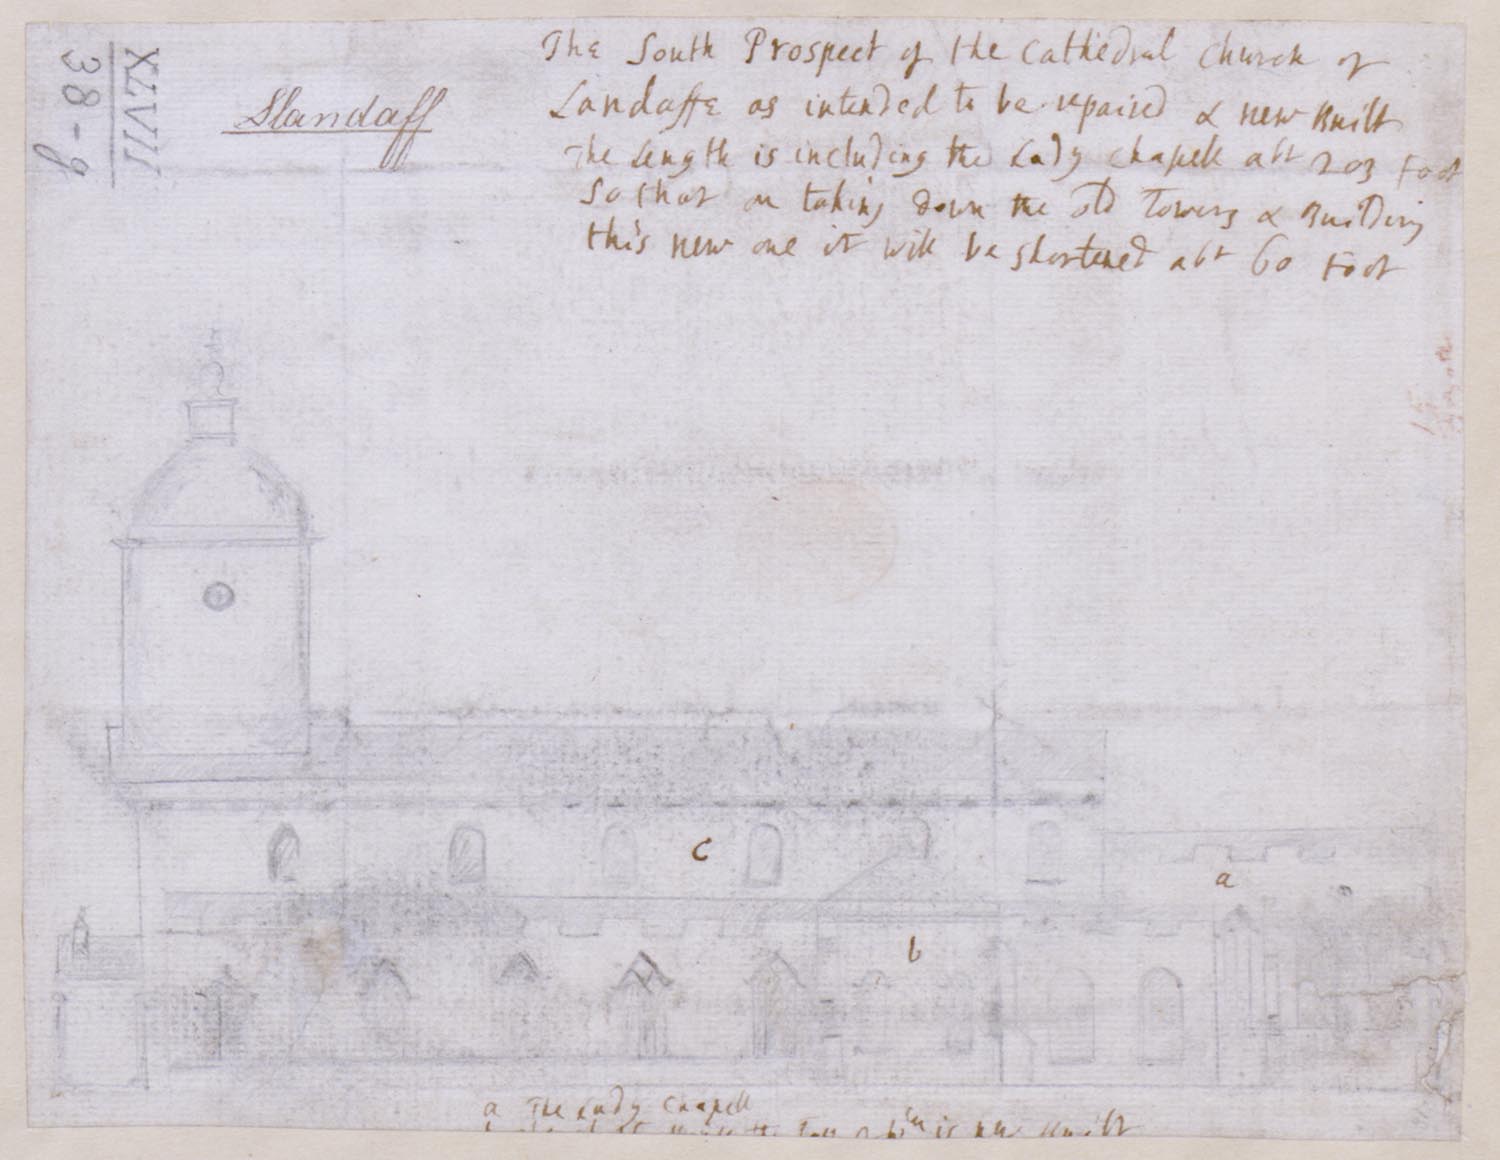 XLVII
38-g
Llandaff
The South Prospect of the Cathedral Church of
Landaffe as intended to be repaired & new Built
The Length is including the Lady Chapell abt 203 foot
So that on taking down the old Towers & Building
this new one it will be shortened abt 60 foot
c
a
b
a The Lady Chapell
is new Built